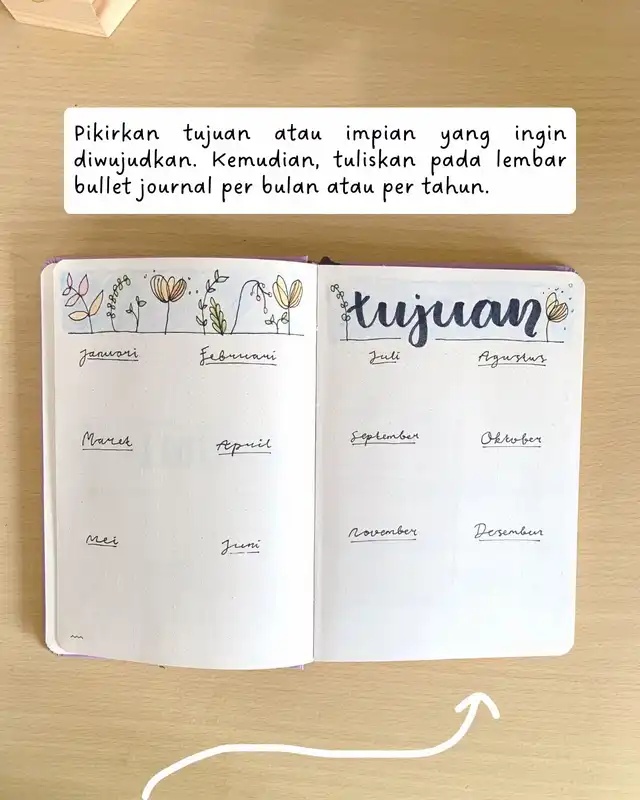 Pikirkan tujuan atau impian yang ingin
diwujudkan. Kemudian, tuliskan pada lembar
bullet journal per bulan atau per tahun.
tujuan
Januari Februari
Maret April
Mei Juni
Juli Agustus
September Oktober
November Desember